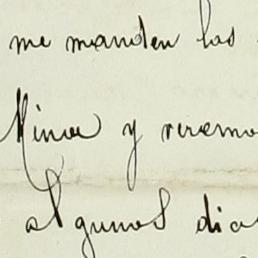 me manden las
Minas y veremo
algunos dias